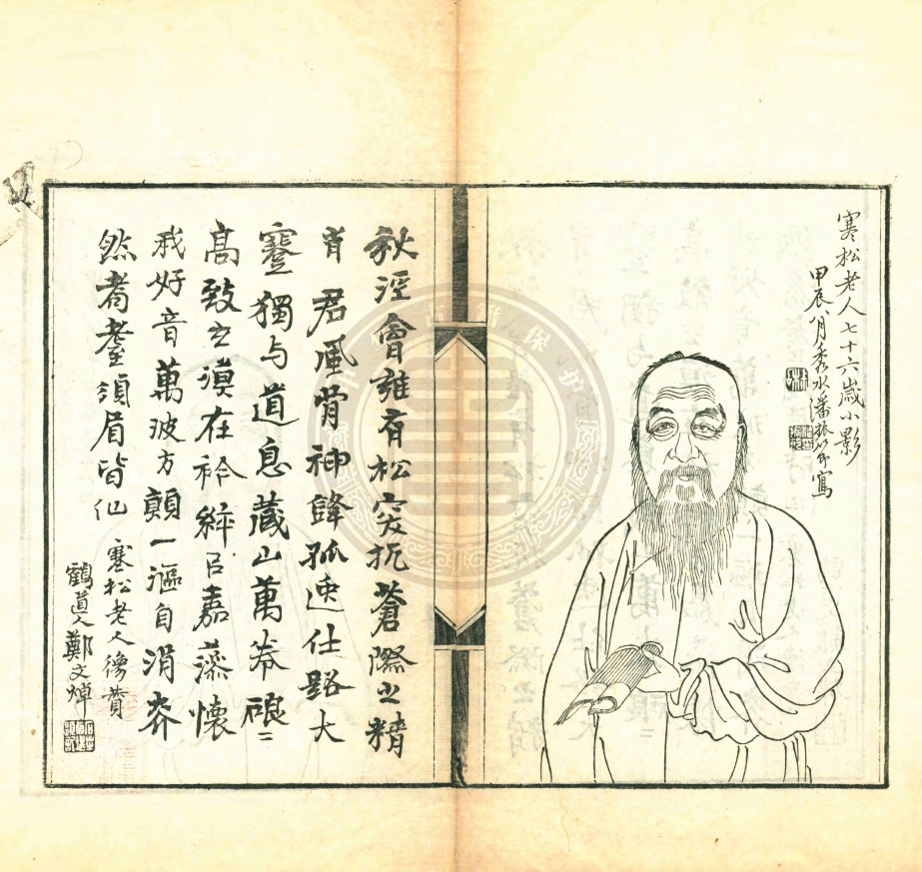 寒松老人七十六歲小影
甲辰八月秀水潘振節寫
秋涇會雖有松突抗蒼際之精
胥君風骨神鋒孤逸仕路大
蹇獨与道息藏山萬卷硠〻
高致玄漠在衿繂㠯嘉藻懷
我好音萬波方顛一漚自涓夯
然耆耋須眉皆仙
寒松老人像贊
鶴道人鄭文焯